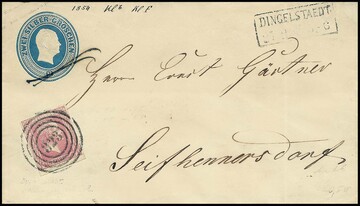 1854
ZWEI SILBER-GROSCHEN
DINGELSTAEDT
Herrn Ernst Gärtner
323
Seifhennersdorf.